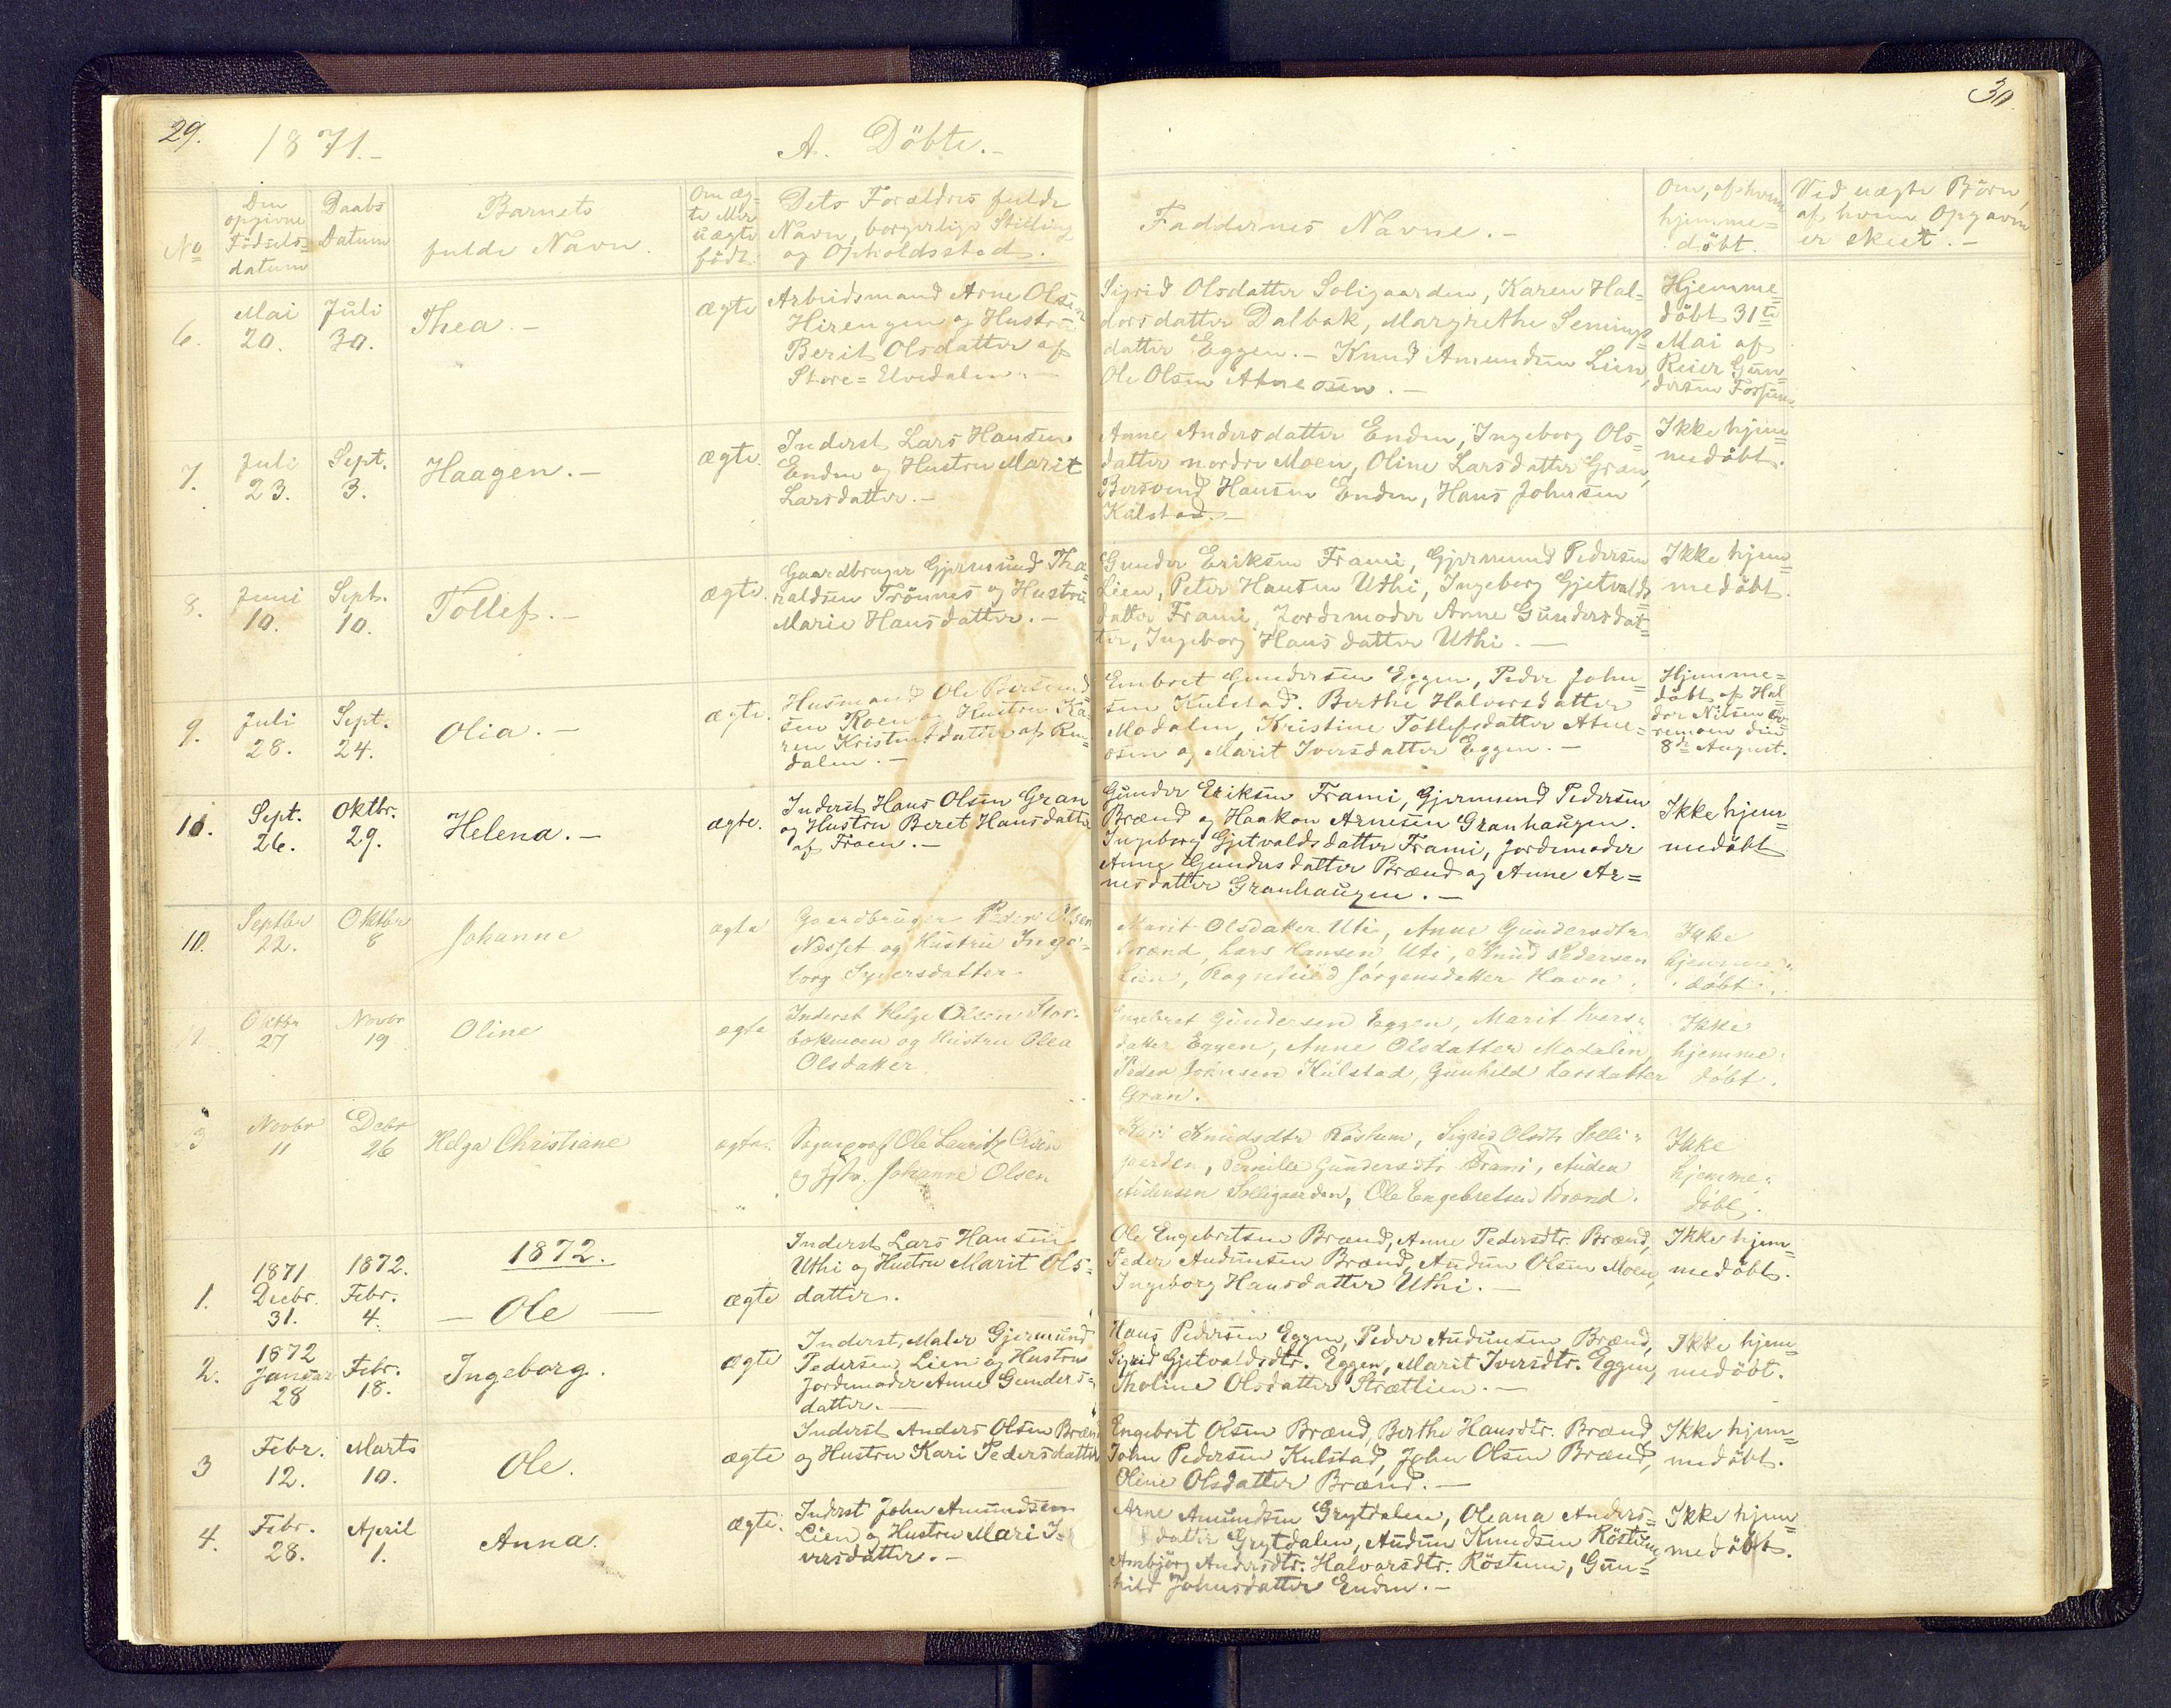 29.
1871.-
A. Döbte.-
30.
No
Den
opgivne
Födsels=
datum
Daabs
Datum
Barnets
fulde Navn.
Om æg-
te eller
uægte
födt.
Dets Forældres fulde
Navn, borgerlige Stilling
og Opholdssted.
Faddernes Navne.-
Om, af hvem
hjemme=
döbt.
Ved uægte Börn,
af hvem Opgaven
er skeet.-
6.
Mai
20.
Juli
30.
Thea.-
ægte
Arbeidsmand Arne Olsen
Hirengen og Hustru
Berit Olsdatter af
Store=Elvedalen.-
Sigrid Olsdatter Soligaarden, Karen Hal=
dorsdatter Dalbak, Margrethe Semings=
datter Eggen.- Knud Amundsen Lien,
Ole Olsen Atneosen.-
Hjemme=
döbt 31te
Mai af
Reier Gun=
dersen
7.
Juli
23.
Sept.
3.
Haagen.-
ægte.
Inderst Lars Hansen
Enden og Hustru Marit
Larsdatter.-
Anne Andersdatter Enden, Ingeborg Ols=
datter nordre Moen, Oline Larsdatter Gran,
Bersvend Hansen Enden, Hans Johnsen
Kulstad.-
Ikke hjem=
medöbt.
8.
Juni
10.
Sept.
10.
Tollef.-
ægte.
Gaardbruger Gjermund Tha=
raldsen Trönnes og Hustru
Marie Hansdatter.-
Gunder Eriksen Frami, Gjermund Pedersen
Lien, Peter Hansen Uthi, Ingeborg Gjetvalds=
datter Frami, Jordemoder Anne Gundersdat=
ter, Ingeborg Hansdatter Uthi.-
Ikke hjem=
medöbt.
9.
Juli
28.
Sept.
24.
Olia.-
ægte.
Husmand Ole Bersvend
sen Roen og Hustru Ka=
ren Kristensdatter af Ren=
dalen.-
Embret Gundersen Eggen, Peder John=
sen Kulstad. Berthe Halvorsdatter
Modalen, Kristine Tollefsdatter Atne=
osen og Marit Iversdatter Eggen.-
Hjemme=
döbt af Hal=
dor Nilsen
den
8de August.
11.
Sept.
26.
Oktbr.
29.
Helena.-
ægte.
Inderst Hans Olsen Gran
og Hustru Beret Hansdatter
af Froen.-
Gunder Eriksen Frami, Gjermund Pedersen
Brænd og Haakon Arnesen Granhaugen.
Ingeborg Gjetvaldsdatter Frami, Jordemoder
Anne Gundersdatter Brænd og Anne Ar=
nesdatter Granhaugen.-
Ikke hjem=
medöbt
10.
Septbr
22.
Oktbr
8
Johanne
ægte
Gaardbruger Peder Olsen
Næsset og Hustru Inge=
borg Syversdatter
Marit Olsdatter Uti, Anne Gundersdtr.
Brænd, Lars Hansen Uti, Knud Pedersen
Lien, Ragnhild Jörgensdatter Havn.
Ikke
hjemme=
döbt.
Oktbr
27
Novbr
19
Oline
ægte
Inderst Helge Olsen Stor-
bekmoen og Hustru Olea
Olsdatter
Engebret Gundersen Eggen, Marit Ivers=
datter Eggen, Anne Olsdatter Modalen,
Peder Johnsen Kulstad, Gunhild Larsdatter
Gran.
Ikke
hjemme=
döbt.
3
Novbr
11
Debr
26
Helga Christiane
ægte
Sognepræst Ole Lauritz Olsen
og Hstr. Johanne Olsen
Kari Knudsdtr Röstum, Sigrid Olsdtr Solli=
gaarden, Pernille Gundersdtr Frami, Auden
Audensen Solligaarden, Ole Engebretsen Brænd.
Ikke
hjemme=
döbt.
1872.
1.
1871
Decbr.
31.
1872.
Febr.
4.
- Ole -
ægte
Inderst Lars Hansen
Uthi og Hustru Marit Ols=
datter.
Ole Engebretsen Brænd, Anne Pedersdtr. Brænd,
Peder Audunsen Brænd, Audun Olsen Moen,
Ingeborg Hansdatter Uthi.-
Ikke hjem=
medöbt.
2.
1872
Januar
28
Febr.
18.
Ingeborg.
ægte
Inderst, Maler Gjermund
Pedersen Lien og Hustru
Jordemoder Anne Gunders=
datter.-
Hans Pedersen Eggen, Peder Audunsen Brænd,
Sigrid Gjetvaldsdtr. Eggen, Marit Iversdtr. Eggen,
Tholine Olsdatter Strætlien.-
Ikke hjem=
medöbt.
3
Febr.
12.
Marts
10.
Ole.
ægte
Inderst Anders Olsen Brænd
og Hustru Kari Pedersdatter
Engebret Olsen Brænd, Berthe Hansdtr. Brænd,
John Pedersen Kulstad, John Olsen Brænd,
Oline Olsdatter Brænd.-
Ikke hjem=
medöbt.
4.
Febr.
28.
April
1.
Anna.
ægte.
Inderst John Amundsen
Lien og Hustru Mari I=
versdatter.-
Arne Amundsen Grytdalen, Oleana Anders=
datter Grytdalen, Audun Knudsen Röstum,
Ambjörg Andersdtr. Halvorsdtr. Röstum, Gun=
hild Johnsdatter Enden.-
Ikke hjem=
medöbt.